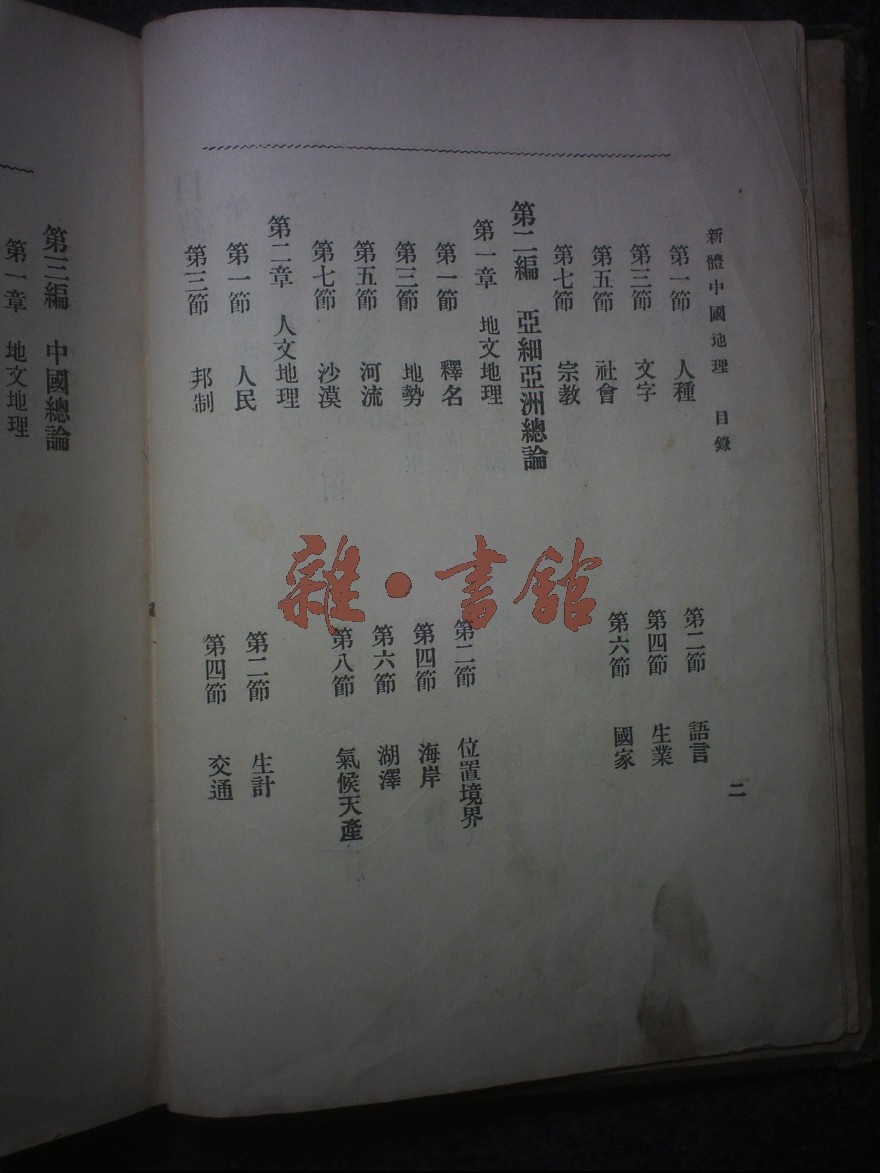 新體中國地理 目錄 二
第一節 人種 第二節 語言
第三節 文字 第四節 生業
第五節 社會 第六節 國家
第七節 宗教
第二編 亞細亞洲總論
第一章 地文地理
第一節 釋名 第二節 位置境界
第三節 地勢 第四節 海岸
第五節 河流 第六節 湖澤
第七節 沙漠 第八節 氣候天產
第二章 人文地理
第一節 人民 第二節 生計
第三節 邦制 第四節 交通
第三編 中國總論
第一章 地文地理
雜·書館